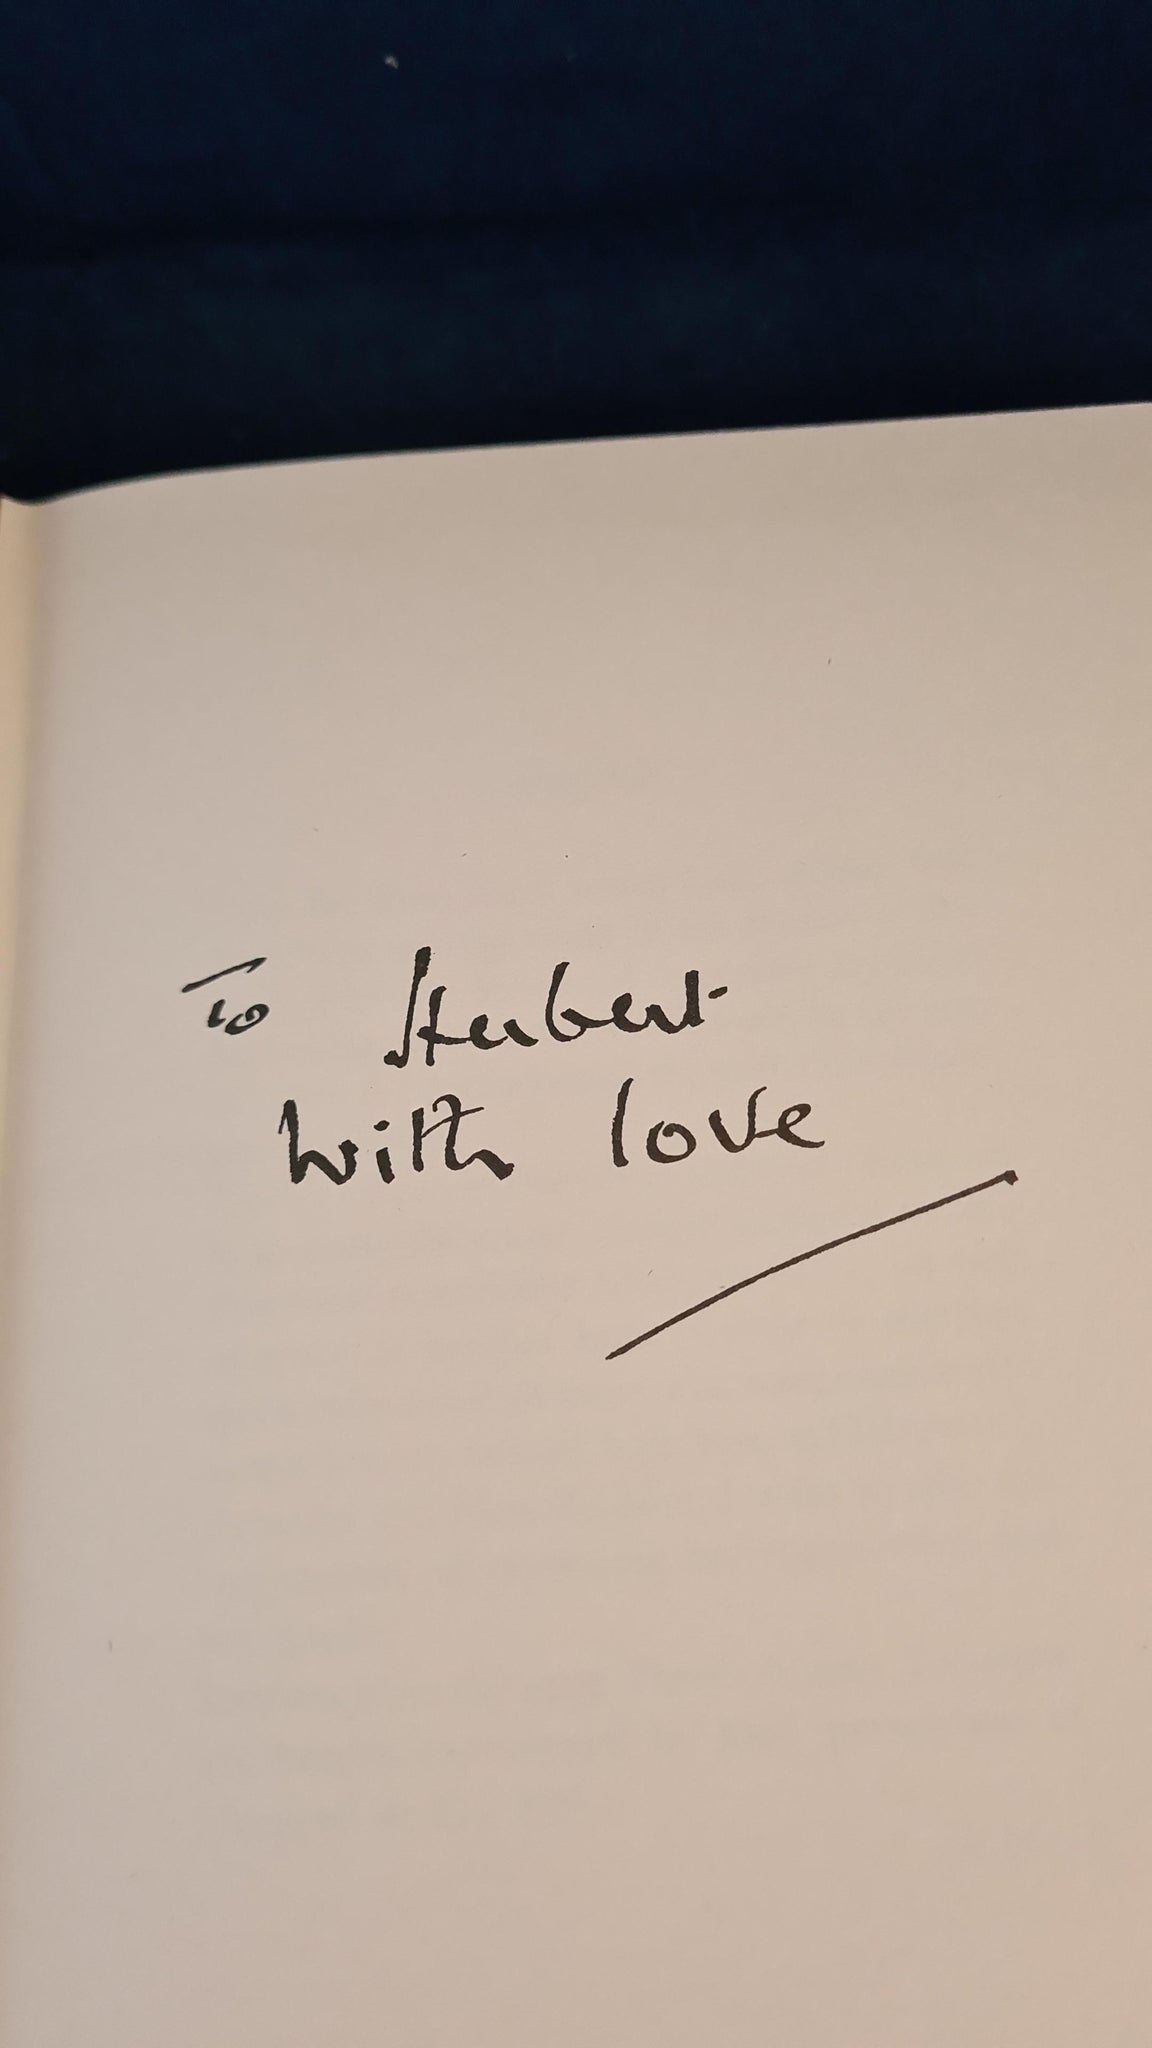 To Herbert
with love